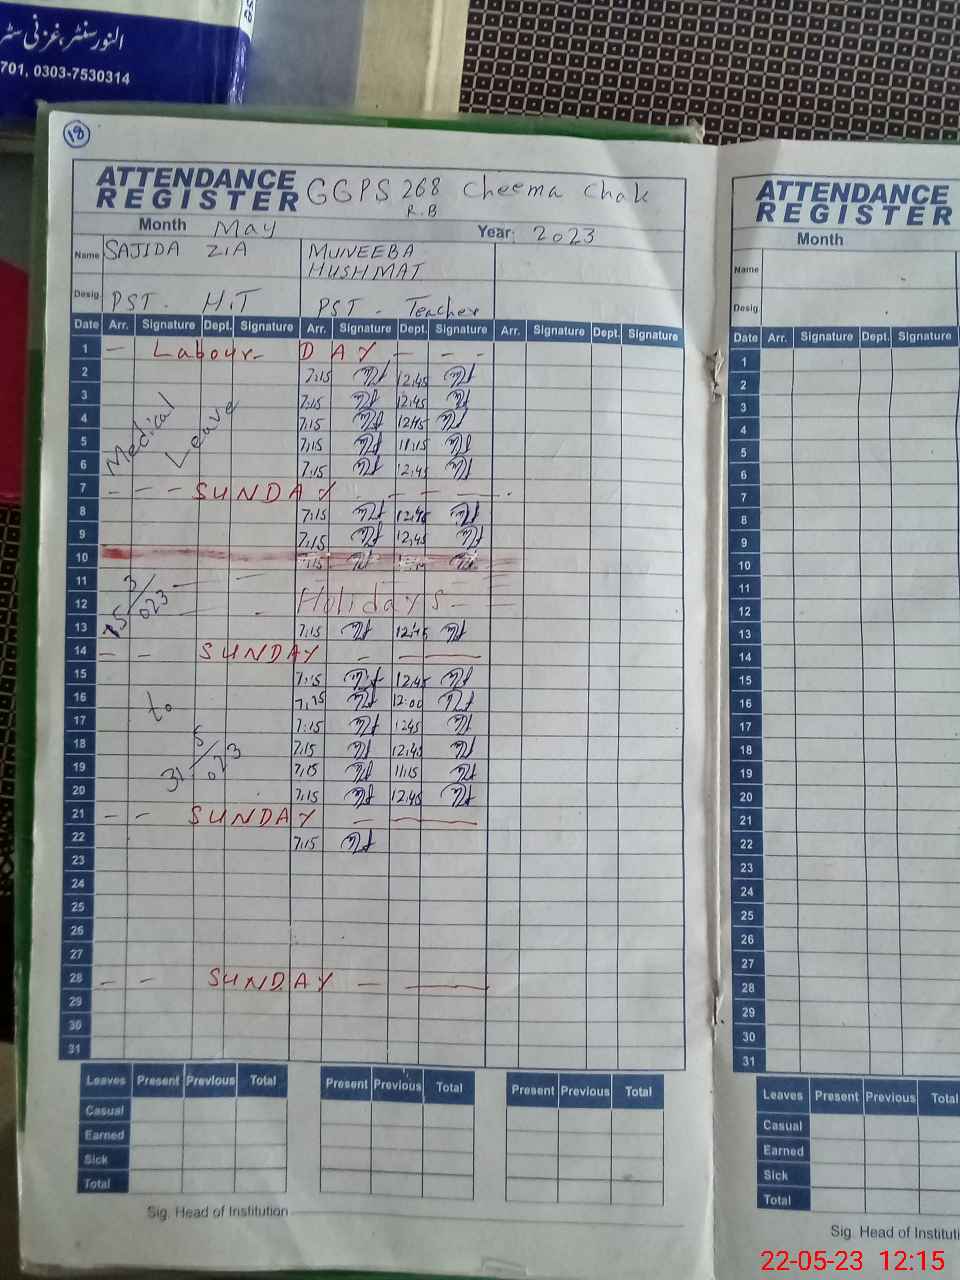 النور سنٹر، غزنی سٹر
701, 0303-7530314
18
ATTENDANCE REGISTER GGPS 268 Cheema Chak
R.B
Month May Year: 2023
Name SAJIDA ZIA MUNEEBA HUSHMAT
Desig. PST - H.T PST - Teacher
Date Arr. Signature Dept. Signature Arr. Signature Dept. Signature Arr. Signature Dept. Signature
1 — Labour - DAY — - -
2 7:15 12:45
3 7:15 12:45
4 7:15 12:45
5 7:15 11:15
6 7:15 12:45
Medical Leave
7 - - - SUNDAY - - -
8 7:15 12:45
9 7:15 12:45
10 7:15
11
12 Holidays
13 7:15 12:45
15/3/023
14 - - SUNDAY -
15 7:15 12:45
16 7:15 12:00
17 7:15 1245
to
18 7:15 12:45
19 7:15 11:15
20 7:15 12:45
31/5/023
21 - - SUNDAY -
22 7:15
23
24
25
26
27
28 - - SUNDAY -
29
30
31
Leaves Present Previous Total Present Previous Total Present Previous Total
Casual
Earned
Sick
Total
Sig. Head of Institution
ATTENDANCE
REGISTER
Month
Name
Desig
Date Arr. Signature Dept. Signature
1
2
3
4
5
6
7
8
9
10
11
12
13
14
15
16
17
18
19
20
21
22
23
24
25
26
27
28
29
30
31
Leaves Present Previous Total
Casual
Earned
Sick
Total
Sig. Head of Instituti
22-05-23 12:15